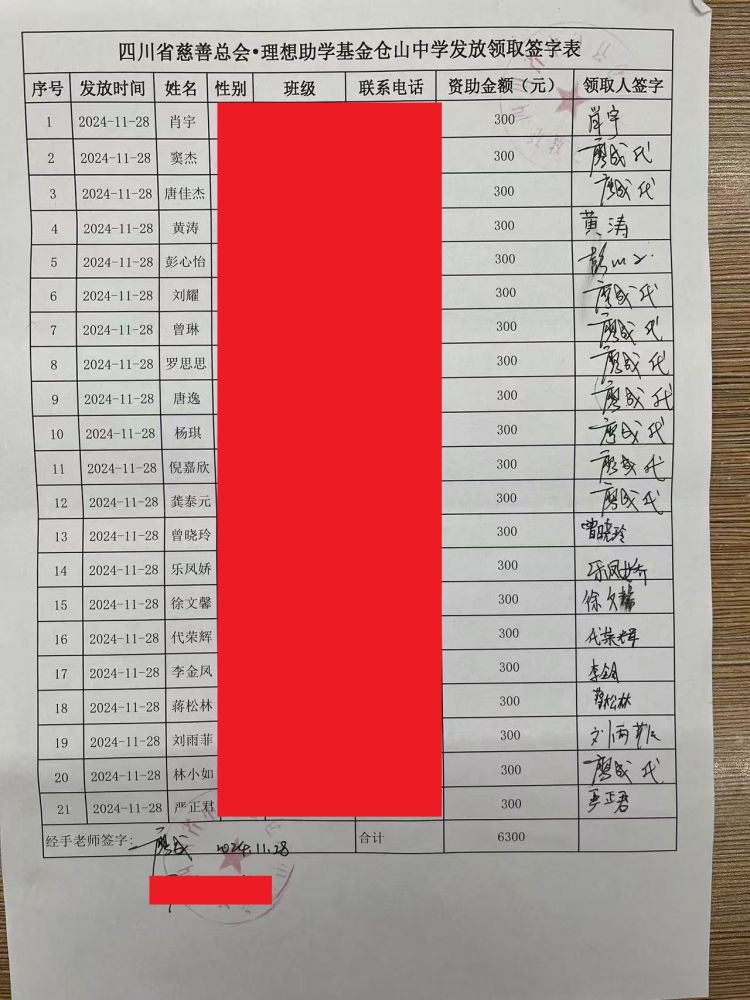 四川省慈善总会•理想助学基金仓山中学发放领取签字表
序号 发放时间 姓名 性别 班级 联系电话 资助金额（元） 领取人签字
1 2024-11-28 肖宇 300 肖宇
2 2024-11-28 窦杰 300 廖成代
3 2024-11-28 唐佳杰 300 廖成代
4 2024-11-28 黄涛 300 黄涛
5 2024-11-28 彭心怡 300 彭心
6 2024-11-28 刘耀 300 廖成代
7 2024-11-28 曾琳 300 廖成代
8 2024-11-28 罗思思 300 廖成代
9 2024-11-28 唐逸 300 廖成代
10 2024-11-28 杨琪 300 廖成代
11 2024-11-28 倪嘉欣 300 廖成代
12 2024-11-28 龚泰元 300 廖成代
13 2024-11-28 曾晓玲 300 曾晓玲
14 2024-11-28 乐凤娇 300 乐凤娇
15 2024-11-28 徐文馨 300 徐文馨
16 2024-11-28 代荣辉 300 代荣辉
17 2024-11-28 李金凤 300 李金
18 2024-11-28 蒋松林 300 蒋松林
19 2024-11-28 刘雨菲 300 刘雨菲
20 2024-11-28 林小如 300 廖成代
21 2024-11-28 严正君 300 严正君
经手老师签字: 廖成 2024.11.28 合计 6300